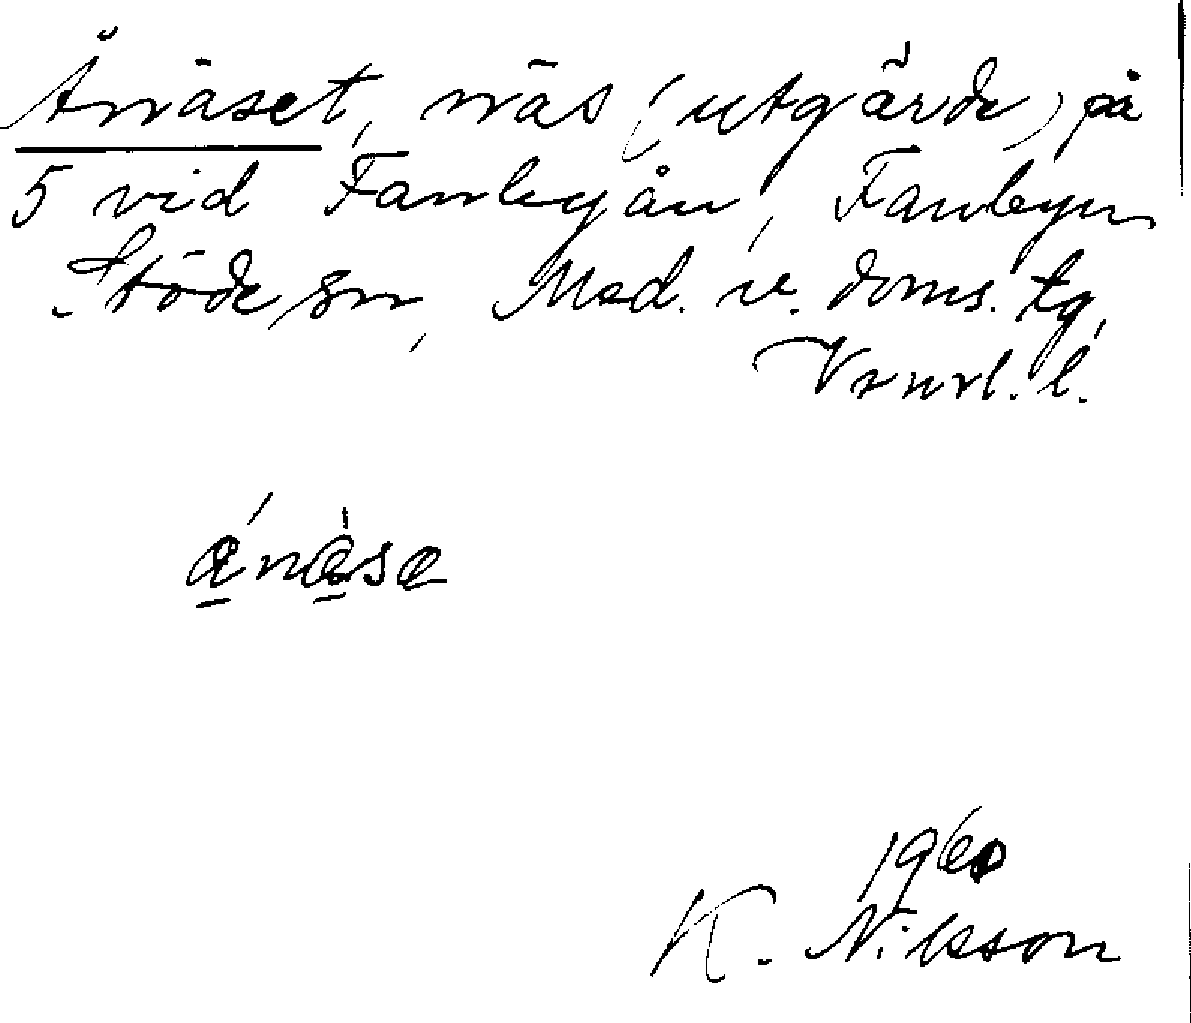 Ånäset, näs (utgärde) på
5 vid Fanbyån, Fanbyn
Stöde sn, Med. v. doms. tg,
Vsnrl. l.
1960
K. Nilsson